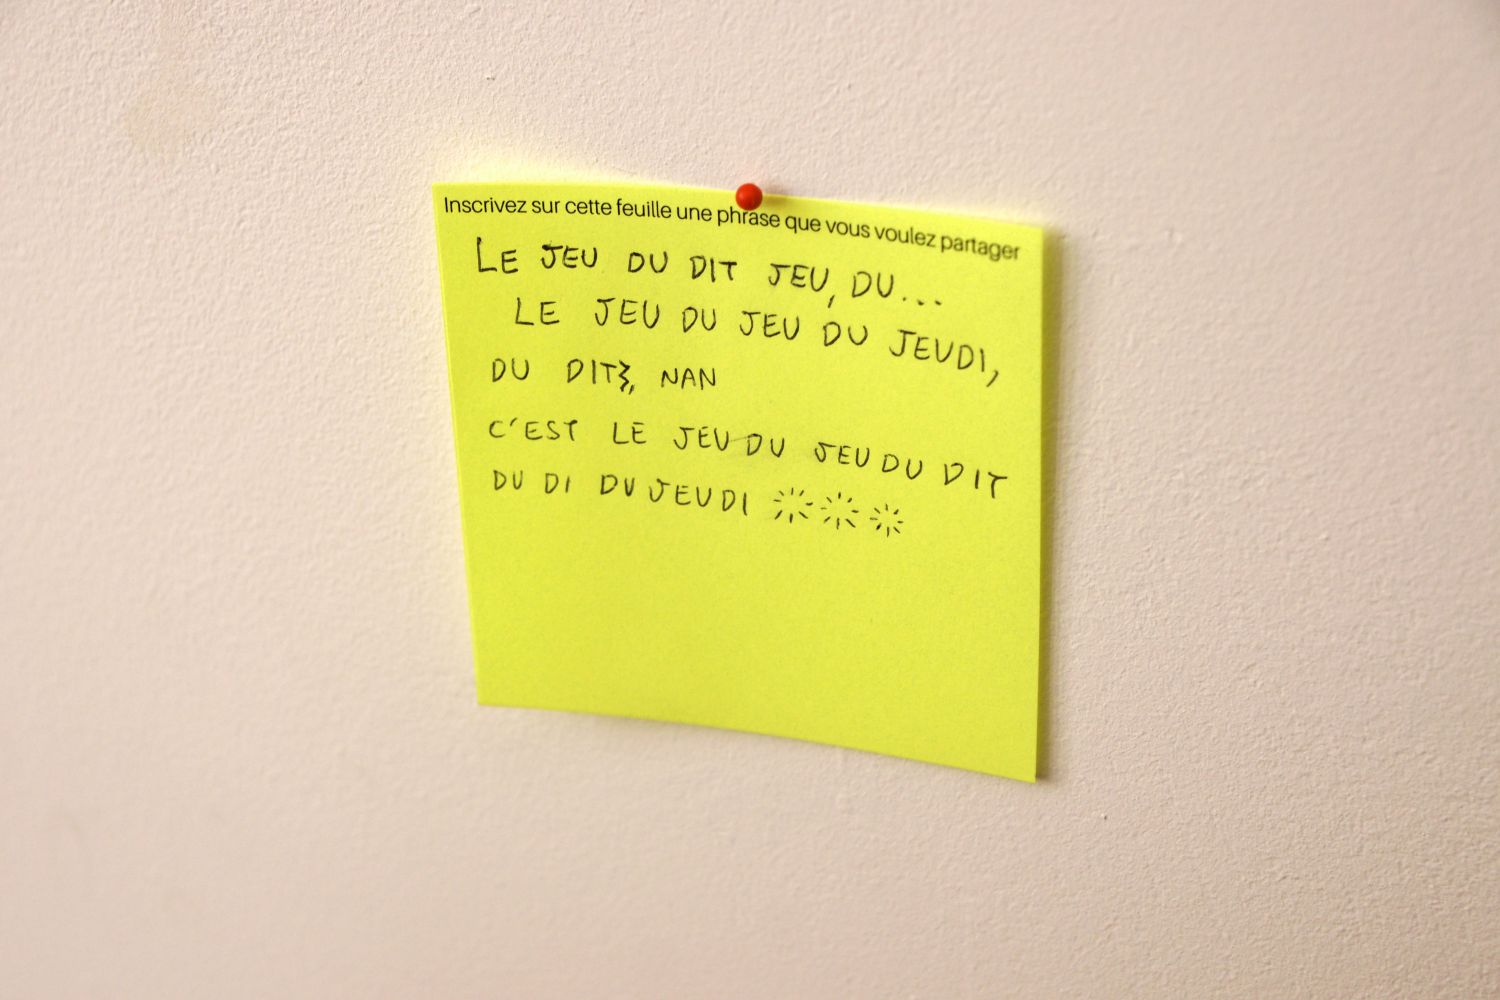 Inscrivez sur cette feuille une phrase que vous voulez partager
LE JEU DU DIT JEU, DU...
LE JEU DU JEU DU JEUDI,
DU DIT, NAN
C'EST LE JEU DU JEU DU DIT
DU DI DU JEUDI